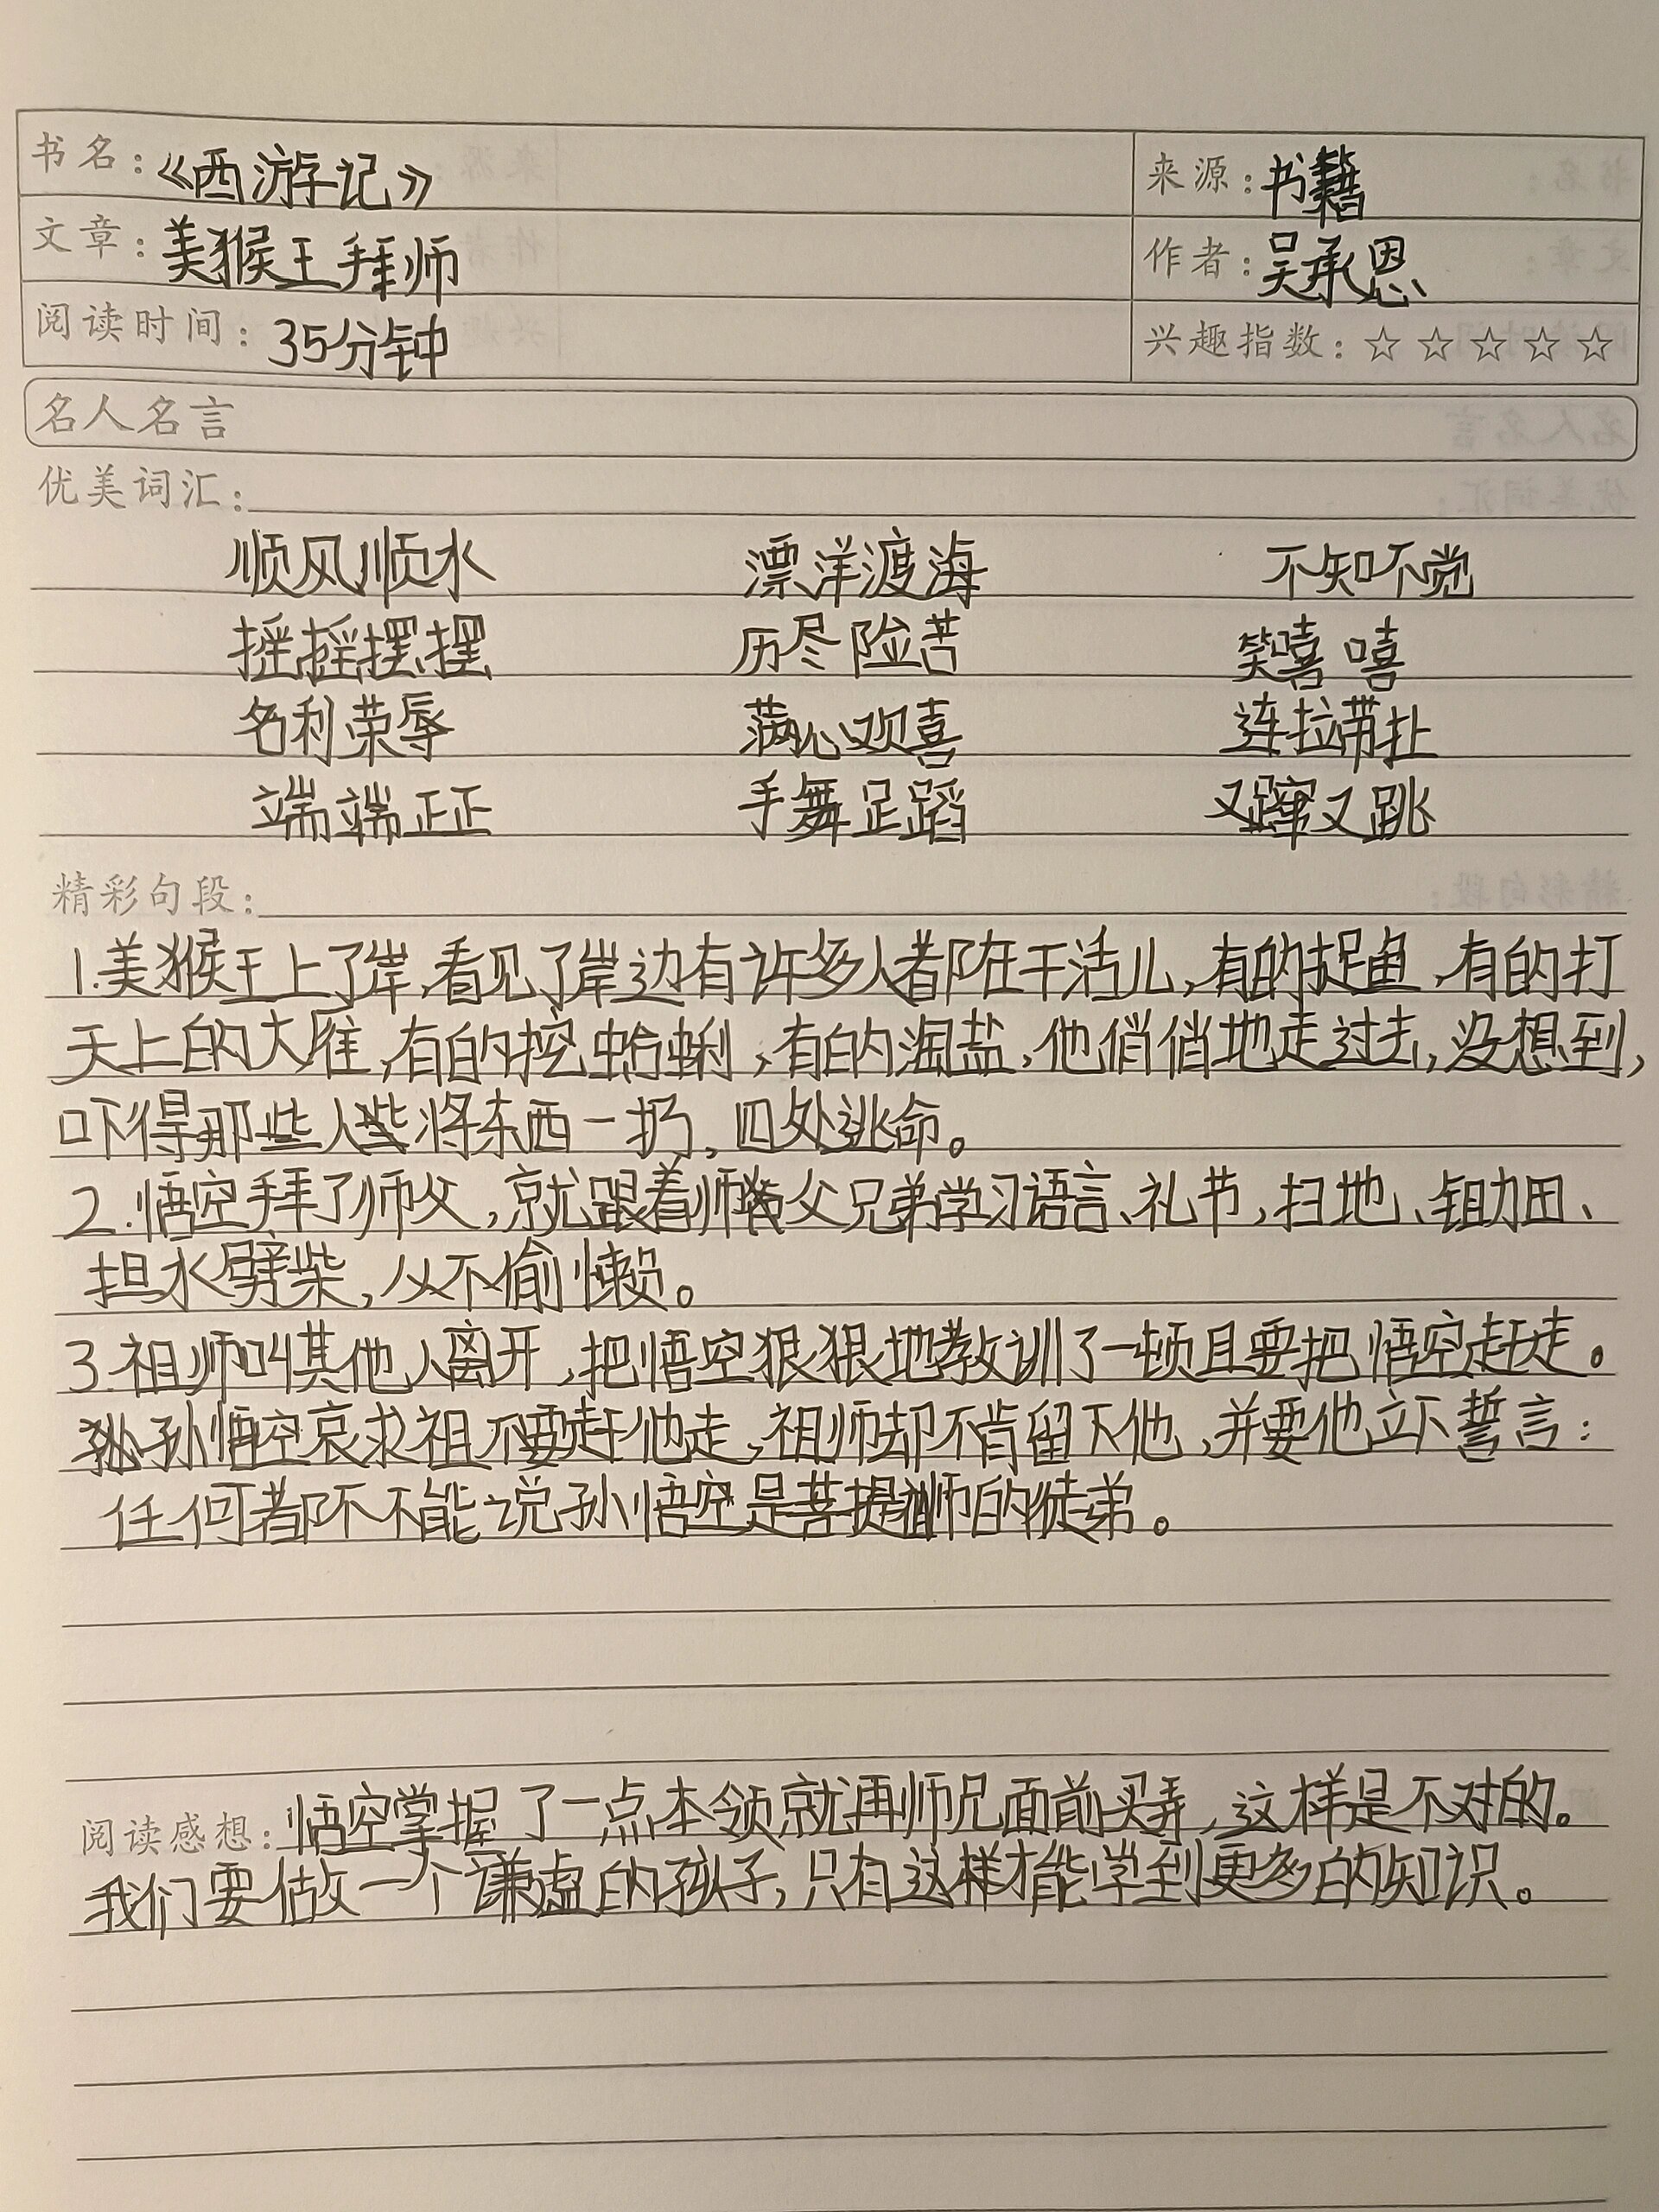 书名：《西游记》 来源：书籍
文章：美猴王拜师 作者：吴承恩
阅读时间：35分钟 兴趣指数：☆☆☆☆☆
名人名言
优美词汇：
顺风顺水 漂洋渡海 不知不觉
摇摇摆摆 历尽险苦 笑嘻嘻
名利荣辱 满心欢喜 连拉带扯
端端正正 手舞足蹈 又蹿又跳
精彩句段：
1.美猴王上了岸,看见了岸边有许多人都在干活儿,有的捉鱼,有的打
天上的大雁,有的挖蛤蜊,有的淘盐,他俏俏地走过去,没想到,
吓得那些人将东西一扔,四处逃命。
2.悟空拜了师父,就跟着师父兄弟学习语言、礼节,扫地、锄田、
担水劈柴,从不偷懒。
3.祖师叫其他人离开,把悟空狠狠地教训了一顿且要把悟空赶走。
孙悟空哀求祖不要赶他走,祖师却不肯留下他,并要他立下誓言:
任何都不不能说孙悟空是菩提祖师的徒弟。
阅读感想：悟空掌握了一点本领就再师兄面前买弄,这样是不对的。
我们要做一个谦虚的孩子,只有这样才能学到更多的知识。